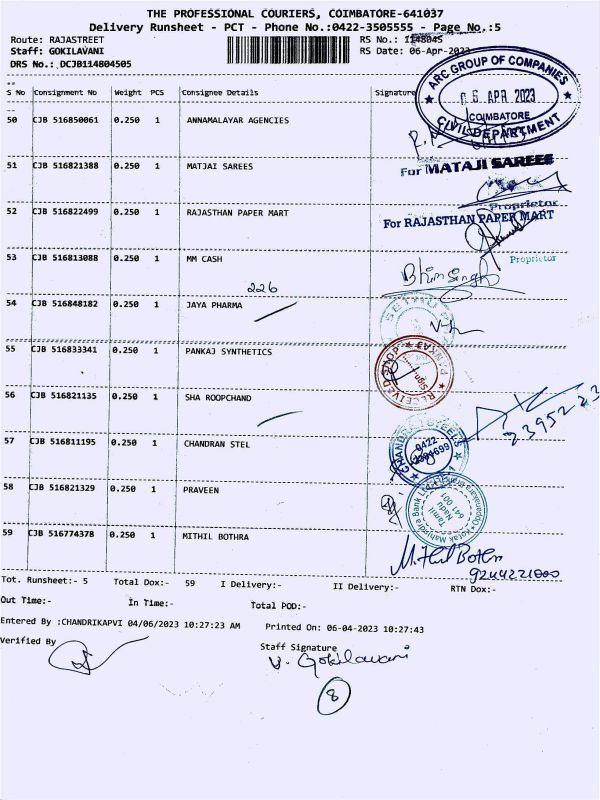 THE PROFESSIONAL COURIERS, COIMBATORE-641037
Delivery Runsheet - PCT - Phone No.:0422-3505555 - Page No.:5
Route: RAJASTREET RS No.: 1148045
Staff: GOKILAVANI RS Date: 06-Apr-2023
DRS No.: DCJB114804505
ARC GROUP OF COMPANIES
06 APR 2023
COIMBATORE
CIVIL DEPARTMENT
S No Consignment No Weight PCS Consignee Details Signature
50 CJB 516850061 0.250 1 ANNAMALAYAR AGENCIES
51 CJB 516821388 0.250 1 MATJAI SAREES
For MATAJI SAREES
Proprietor
52 CJB 516822499 0.250 1 RAJASTHAN PAPER MART
For RAJASTHAN PAPER MART
Proprietor
53 CJB 516813088 0.250 1 MM CASH
Bhimsingh
226
54 CJB 516848182 0.250 1 JAYA PHARMA
55 CJB 516833341 0.250 1 PANKAJ SYNTHETICS
RECEIVED
Sign.
PANKAJ
56 CJB 516821135 0.250 1 SHA ROOPCHAND
2395223
57 CJB 516811195 0.250 1 CHANDRAN STEL
0422
58 CJB 516821329 0.250 1 PRAVEEN
Kotak Mahindra Bank Ltd
Tamil
Nadu
641 001
59 CJB 516774378 0.250 1 MITHIL BOTHRA
Mithil Bothra
9244221000
Tot. Runsheet:- 5 Total Dox:- 59 I Delivery:- II Delivery:- RTN Dox:-
Out Time:- In Time:- Total POD:-
Entered By :CHANDRIKAPVI 04/06/2023 10:27:23 AM Printed On: 06-04-2023 10:27:43
Verified By Staff Signature
V. Gokilavani
8